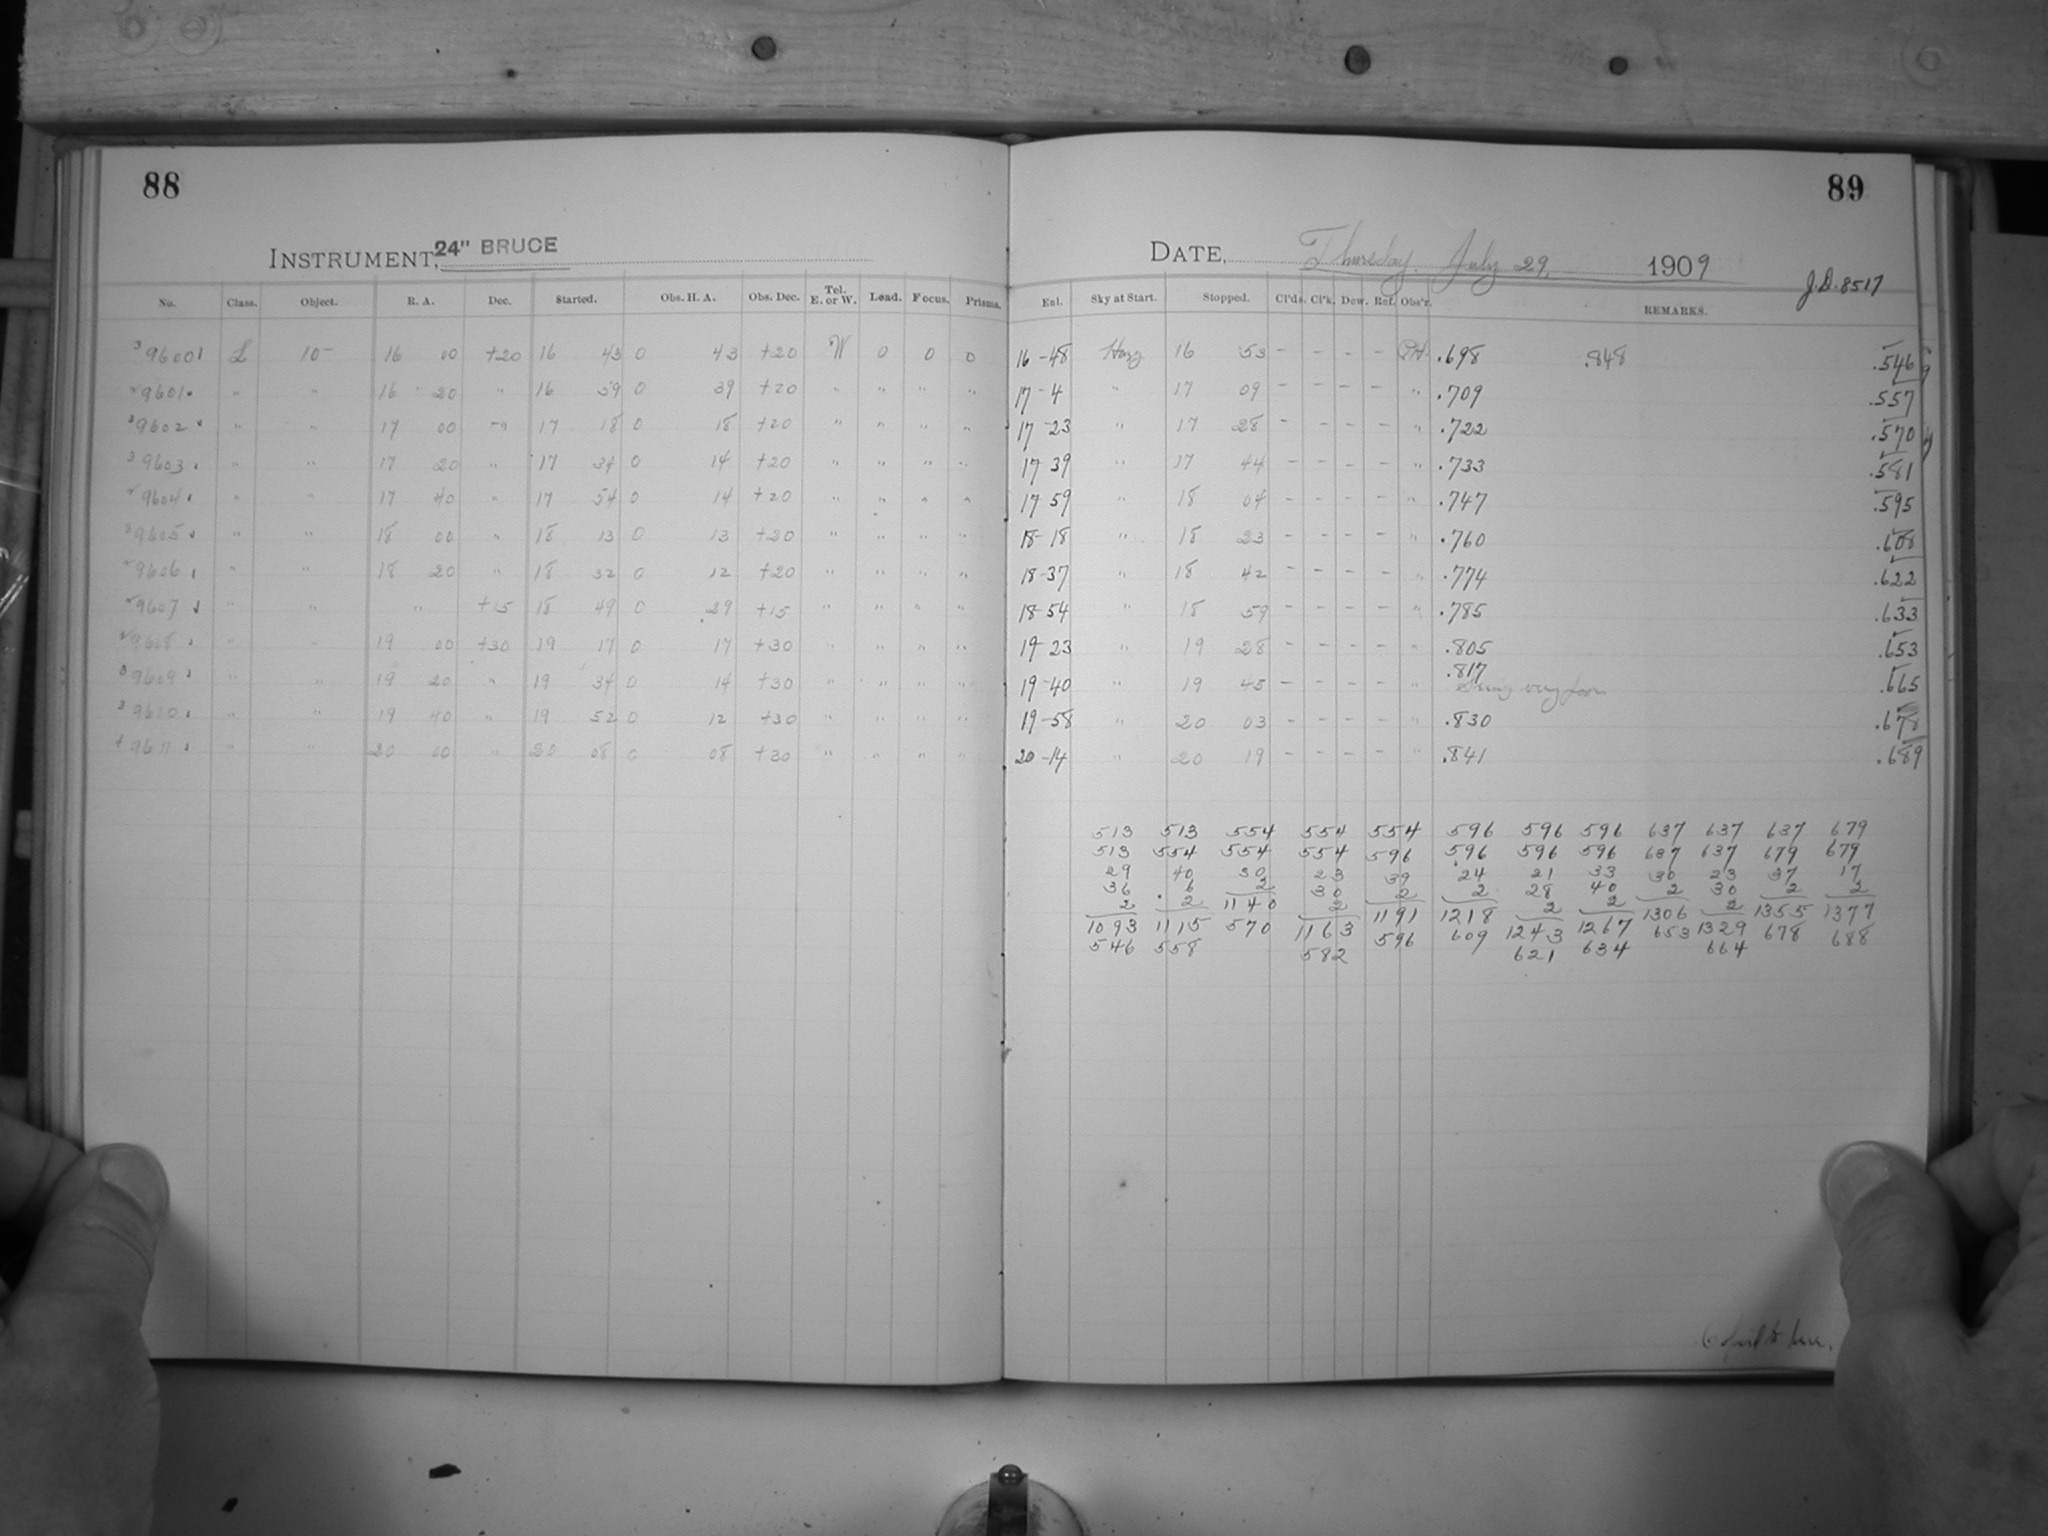 88
INSTRUMENT, 24" BRUCE
No. Class. Object. R. A. Dec. Started. Obs. H. A. Obs. Dec. Tel. E. or W. Load. Focus. Prisms.
3 9600 L 10- 16 00 +20 16 43 0 43 +20 W 0 0 0
9601 " " 16 20 " 16 59 0 39 +20 " " " "
3 9602 " " 17 00 " 17 18 0 18 +20 " " " "
3 9603 " " 17 20 " 17 34 0 14 +20 " " " "
9604 " " 17 40 " 17 54 0 14 +20 " " " "
3 9605 " " 18 00 " 18 13 0 13 +20 " " " "
9606 " " 18 20 " 18 32 0 12 +20 " " " "
9607 " " " +15 18 49 0 29 +15 " " " "
9608 " " 19 00 +30 19 17 0 17 +30 " " " "
9609 " " 19 20 " 19 34 0 14 +30 " " " "
3 9610 " " 19 40 " 19 52 0 12 +30 " " " "
9611 " " 20 00 " 20 08 0 08 +30 " " " "
89
DATE, Thursday. July 29, 1909
J.D. 8517
Enl. Sky at Start. Stopped. Cl'ds. Cl'k. Dew. Ref. Obs'r. REMARKS.
16-48 Hazy 16 53 - - - - .698 .848 .546
17-4 " 17 09 - - - - " .709 .557
17-23 " 17 28 - - - - " .722 .570
17-39 " 17 44 - - - - " .733 .581
17-59 " 18 04 - - - - " .747 .595
18-18 " 18 23 - - - - " .760 .608
18-37 " 18 42 - - - - " .774 .622
18-54 " 18 59 - - - - " .785 .633
19-23 " 19 28 - - - - " .805 .653
19-40 " 19 45 - - - - " .817 Seeing very poor .665
19-58 " 20 03 - - - - " .830 .678
20-14 " 20 19 - - - - " .841 .689
513 513 554 554 554 596 596 596 637 637 637 679
513 554 554 554 596 596 596 596 637 637 679 679
29 40 30 23 39 24 21 33 30 23 37 17
36 6 2 30 2 2 28 40 2 30 2 2
2 2 1140 2 1191 1218 2 2 1306 2 1355 1377
1093 1115 570 1163 596 609 1243 1267 653 1329 678 688
546 558 582 621 634 664